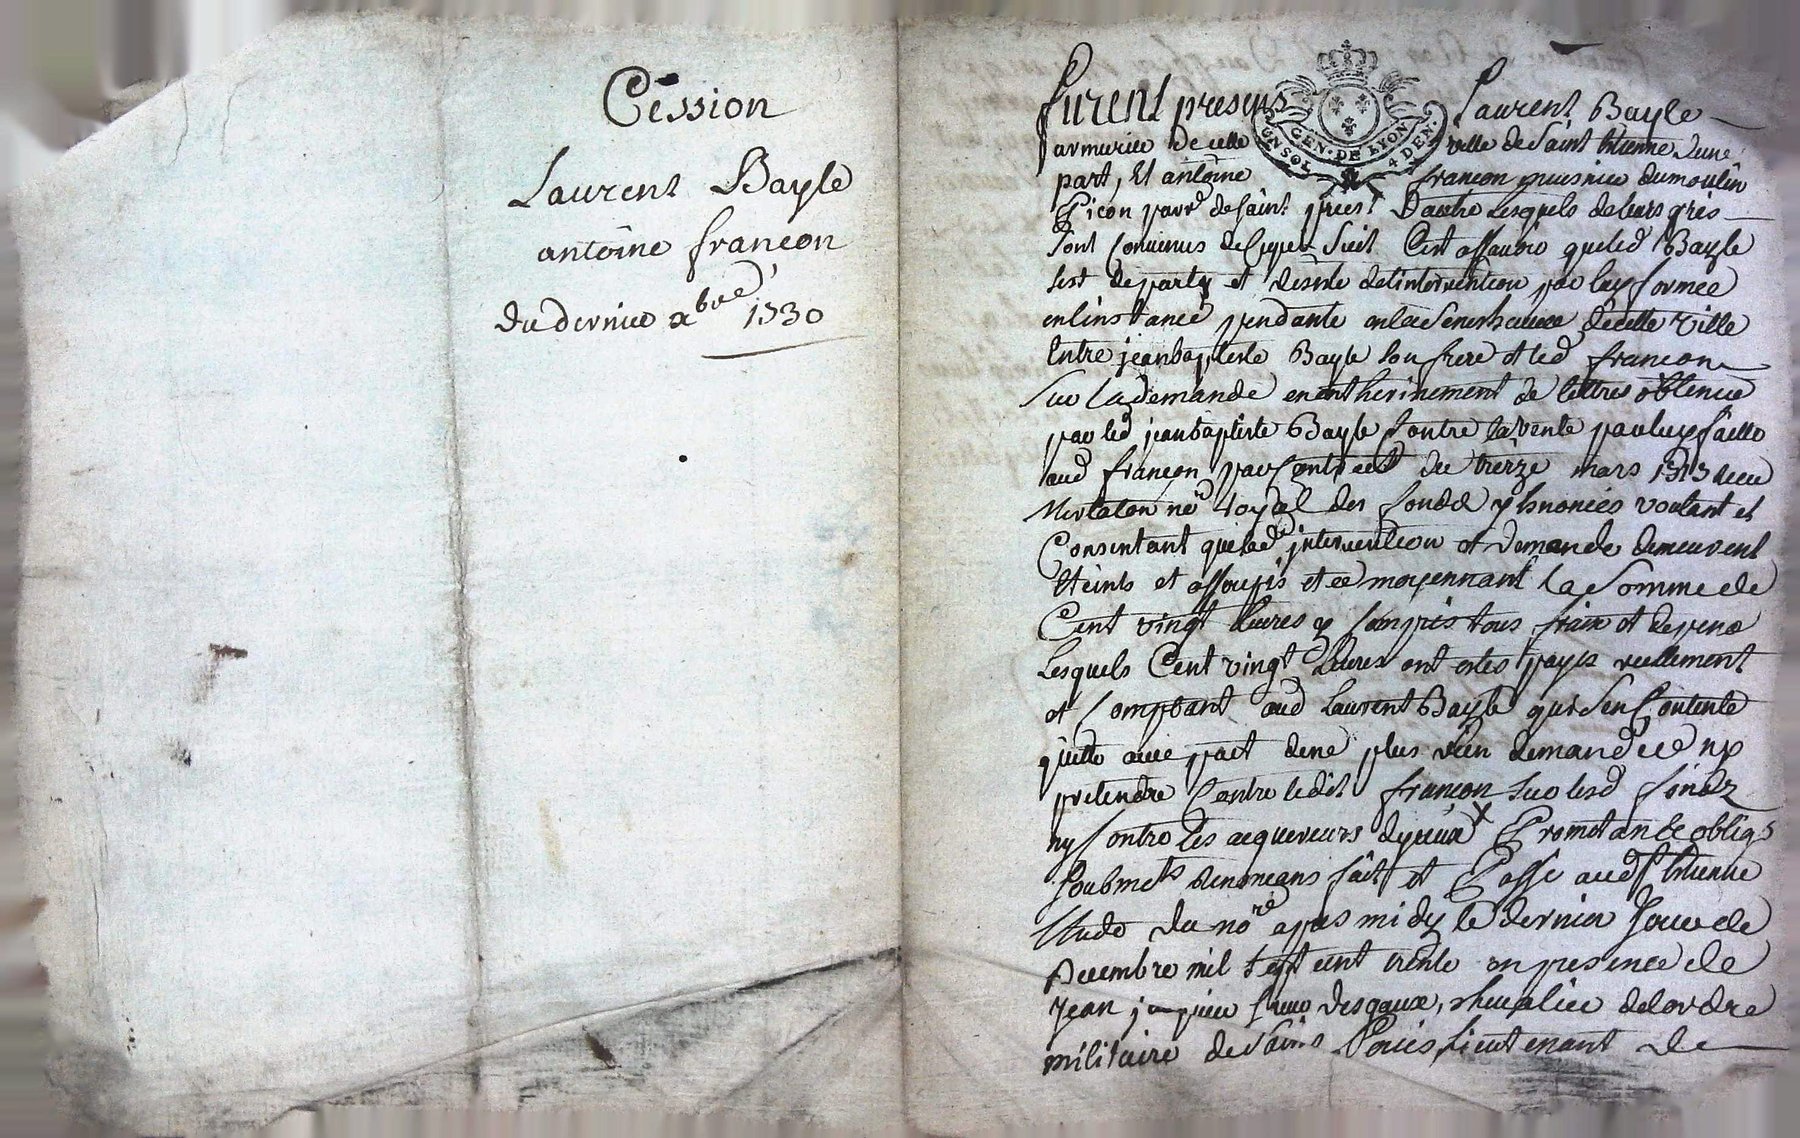 Cession
Laurent Bayle
antoine françon
du dernier xbre 1730
furent presens Laurent Bayle
GEN. DE LYON.
UN SOL 4 DEN.
armurier de cette ville de Saint Etienne d'une
part, Et antoine françon meusnier du moulin
Picon parr. de saint priest D'autre Lesquels de leurs grés
sont Convenus de Ce que suit C'est assavoir que led Bayle
s'est departy et desiste de l'intervention par luy formée
en l'instance pendante en la Senechaussée de cette ville
Entre jean baptiste Bayle son frere et led françon
sur la demande en entherinement de lettres obtenue
par led jean baptiste Bayle Contre la vente par luy faitte
aud françon par Contract du treize mars 1713 reçu
nore royal des fonds y Enoncés voulant et
Consentant que lade intervention et demande demeurent
Eteints et assoupis et ce moyennant la somme de
Cent vingt Livres y Compris tous frais et depens
Lesquels Cent vingt Livres ont estés payés reellement
et Comptant aud Laurent Bayle qui s'en Contente
quitte avec pact de ne plus rien demander ny
pretendre Contre ledit françon sur lesd fonds
ny Contre les acquereurs d'yceux x Promettans &c oblig.s
soubmets renoncans fait et Passé aud St Etienne
Etude du nore apres midy le dernier Jour de
Decembre mil sept cent trente en presence de
Jean jacques desgaux, chevalier de lordre
militaire de Saint Louis, Lieutenant de